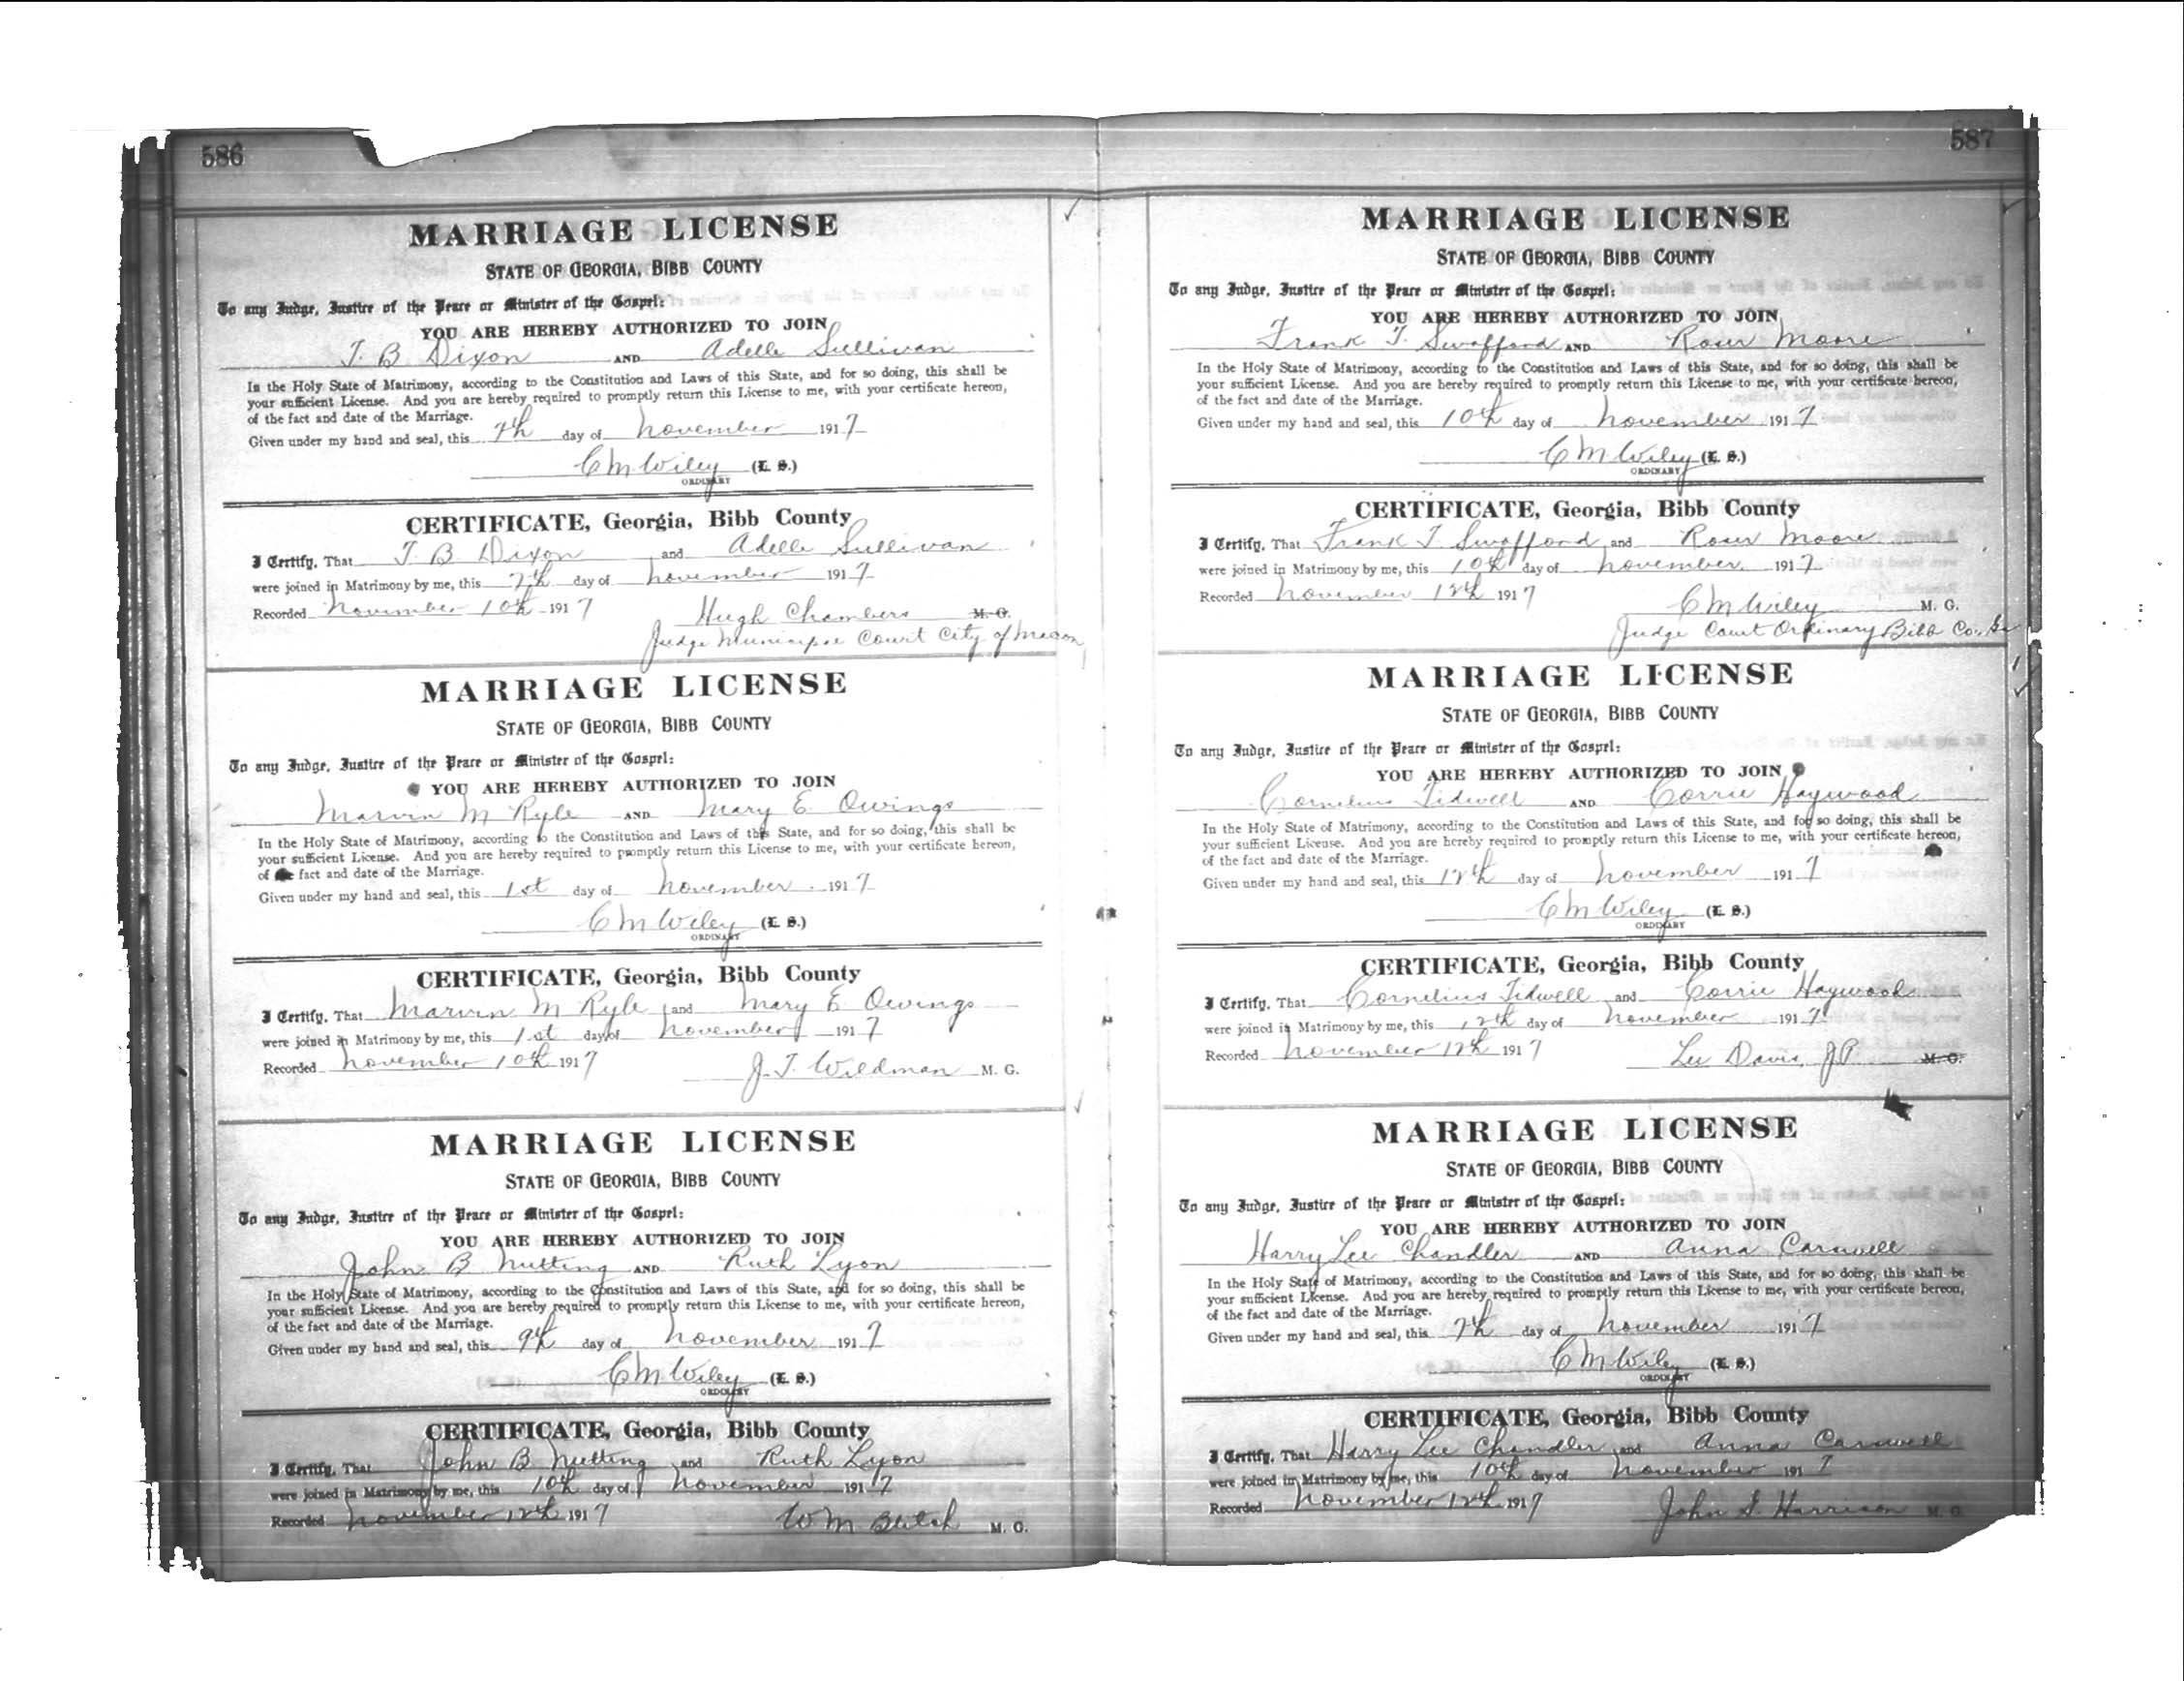 586
MARRIAGE LICENSE
STATE OF GEORGIA, BIBB COUNTY
To any Judge, Justice of the Peace or Minister of the Gospel:
YOU ARE HEREBY AUTHORIZED TO JOIN
T. B Dixon AND Adelle Sullivan
In the Holy State of Matrimony, according to the Constitution and Laws of this State, and for so doing, this shall be
your sufficient License. And you are hereby required to promptly return this License to me, with your certificate hereon,
of the fact and date of the Marriage.
Given under my hand and seal, this 7th day of November 1917
C M Wiley (L. S.)
ORDINARY
CERTIFICATE, Georgia, Bibb County
I Certify, That T. B Dixon and Adelle Sullivan
were joined in Matrimony by me, this 7th day of November 1917
Recorded November 10th 1917 Hugh Chambers M. G.
Judge Court City of Macon
MARRIAGE LICENSE
STATE OF GEORGIA, BIBB COUNTY
To any Judge, Justice of the Peace or Minister of the Gospel:
YOU ARE HEREBY AUTHORIZED TO JOIN
Marvin M Ryle AND Mary E Owings
In the Holy State of Matrimony, according to the Constitution and Laws of this State, and for so doing, this shall be
your sufficient License. And you are hereby required to promptly return this License to me, with your certificate hereon,
of the fact and date of the Marriage.
Given under my hand and seal, this 1st day of November 1917
C M Wiley (L. S.)
ORDINARY
CERTIFICATE, Georgia, Bibb County
I Certify, That Marvin M Ryle and Mary E Owings
were joined in Matrimony by me, this 1st day of November 1917
Recorded November 10th 1917 J. T. Wildman M. G.
MARRIAGE LICENSE
STATE OF GEORGIA, BIBB COUNTY
To any Judge, Justice of the Peace or Minister of the Gospel:
YOU ARE HEREBY AUTHORIZED TO JOIN
John B Nutting AND Ruth Lyon
In the Holy State of Matrimony, according to the Constitution and Laws of this State, and for so doing, this shall be
your sufficient License. And you are hereby required to promptly return this License to me, with your certificate hereon,
of the fact and date of the Marriage.
Given under my hand and seal, this 9th day of November 1917
C M Wiley (L. S.)
ORDINARY
CERTIFICATE, Georgia, Bibb County
I Certify, That John B Nutting and Ruth Lyon
were joined in Matrimony by me, this 10th day of November 1917
Recorded November 12th 1917 W M Blitch M. G.
587
MARRIAGE LICENSE
STATE OF GEORGIA, BIBB COUNTY
To any Judge, Justice of the Peace or Minister of the Gospel:
YOU ARE HEREBY AUTHORIZED TO JOIN
Frank T. Swafford AND Moore
In the Holy State of Matrimony, according to the Constitution and Laws of this State, and for so doing, this shall be
your sufficient License. And you are hereby required to promptly return this License to me, with your certificate hereon,
of the fact and date of the Marriage.
Given under my hand and seal, this 10th day of November 1917
C M Wiley (L. S.)
ORDINARY
CERTIFICATE, Georgia, Bibb County
I Certify, That Frank T Swafford and Moore
were joined in Matrimony by me, this 10th day of November 1917
Recorded November 12th 1917 C M Wiley M. G.
Judge Court Ordinary Bibb Co., Ga
MARRIAGE LICENSE
STATE OF GEORGIA, BIBB COUNTY
To any Judge, Justice of the Peace or Minister of the Gospel:
YOU ARE HEREBY AUTHORIZED TO JOIN
Cornelius Tidwell AND Corrie Haywood
In the Holy State of Matrimony, according to the Constitution and Laws of this State, and for so doing, this shall be
your sufficient License. And you are hereby required to promptly return this License to me, with your certificate hereon,
of the fact and date of the Marriage.
Given under my hand and seal, this 12th day of November 1917
C M Wiley (L. S.)
ORDINARY
CERTIFICATE, Georgia, Bibb County
I Certify, That Cornelius Tidwell and Corrie Haywood
were joined in Matrimony by me, this 12th day of November 1917
Recorded November 12th 1917 Lee Davis, J P. M. G.
MARRIAGE LICENSE
STATE OF GEORGIA, BIBB COUNTY
To any Judge, Justice of the Peace or Minister of the Gospel:
YOU ARE HEREBY AUTHORIZED TO JOIN
Harry Lee Chandler AND Anna Carswell
In the Holy State of Matrimony, according to the Constitution and Laws of this State, and for so doing, this shall be
your sufficient License. And you are hereby required to promptly return this License to me, with your certificate hereon,
of the fact and date of the Marriage.
Given under my hand and seal, this 7th day of November 1917
C M Wiley (L. S.)
ORDINARY
CERTIFICATE, Georgia, Bibb County
I Certify, That Harry Lee Chandler and Anna Carswell
were joined in Matrimony by me, this 10th day of November 1917
Recorded November 12th 1917 John S. Harrison M. G.